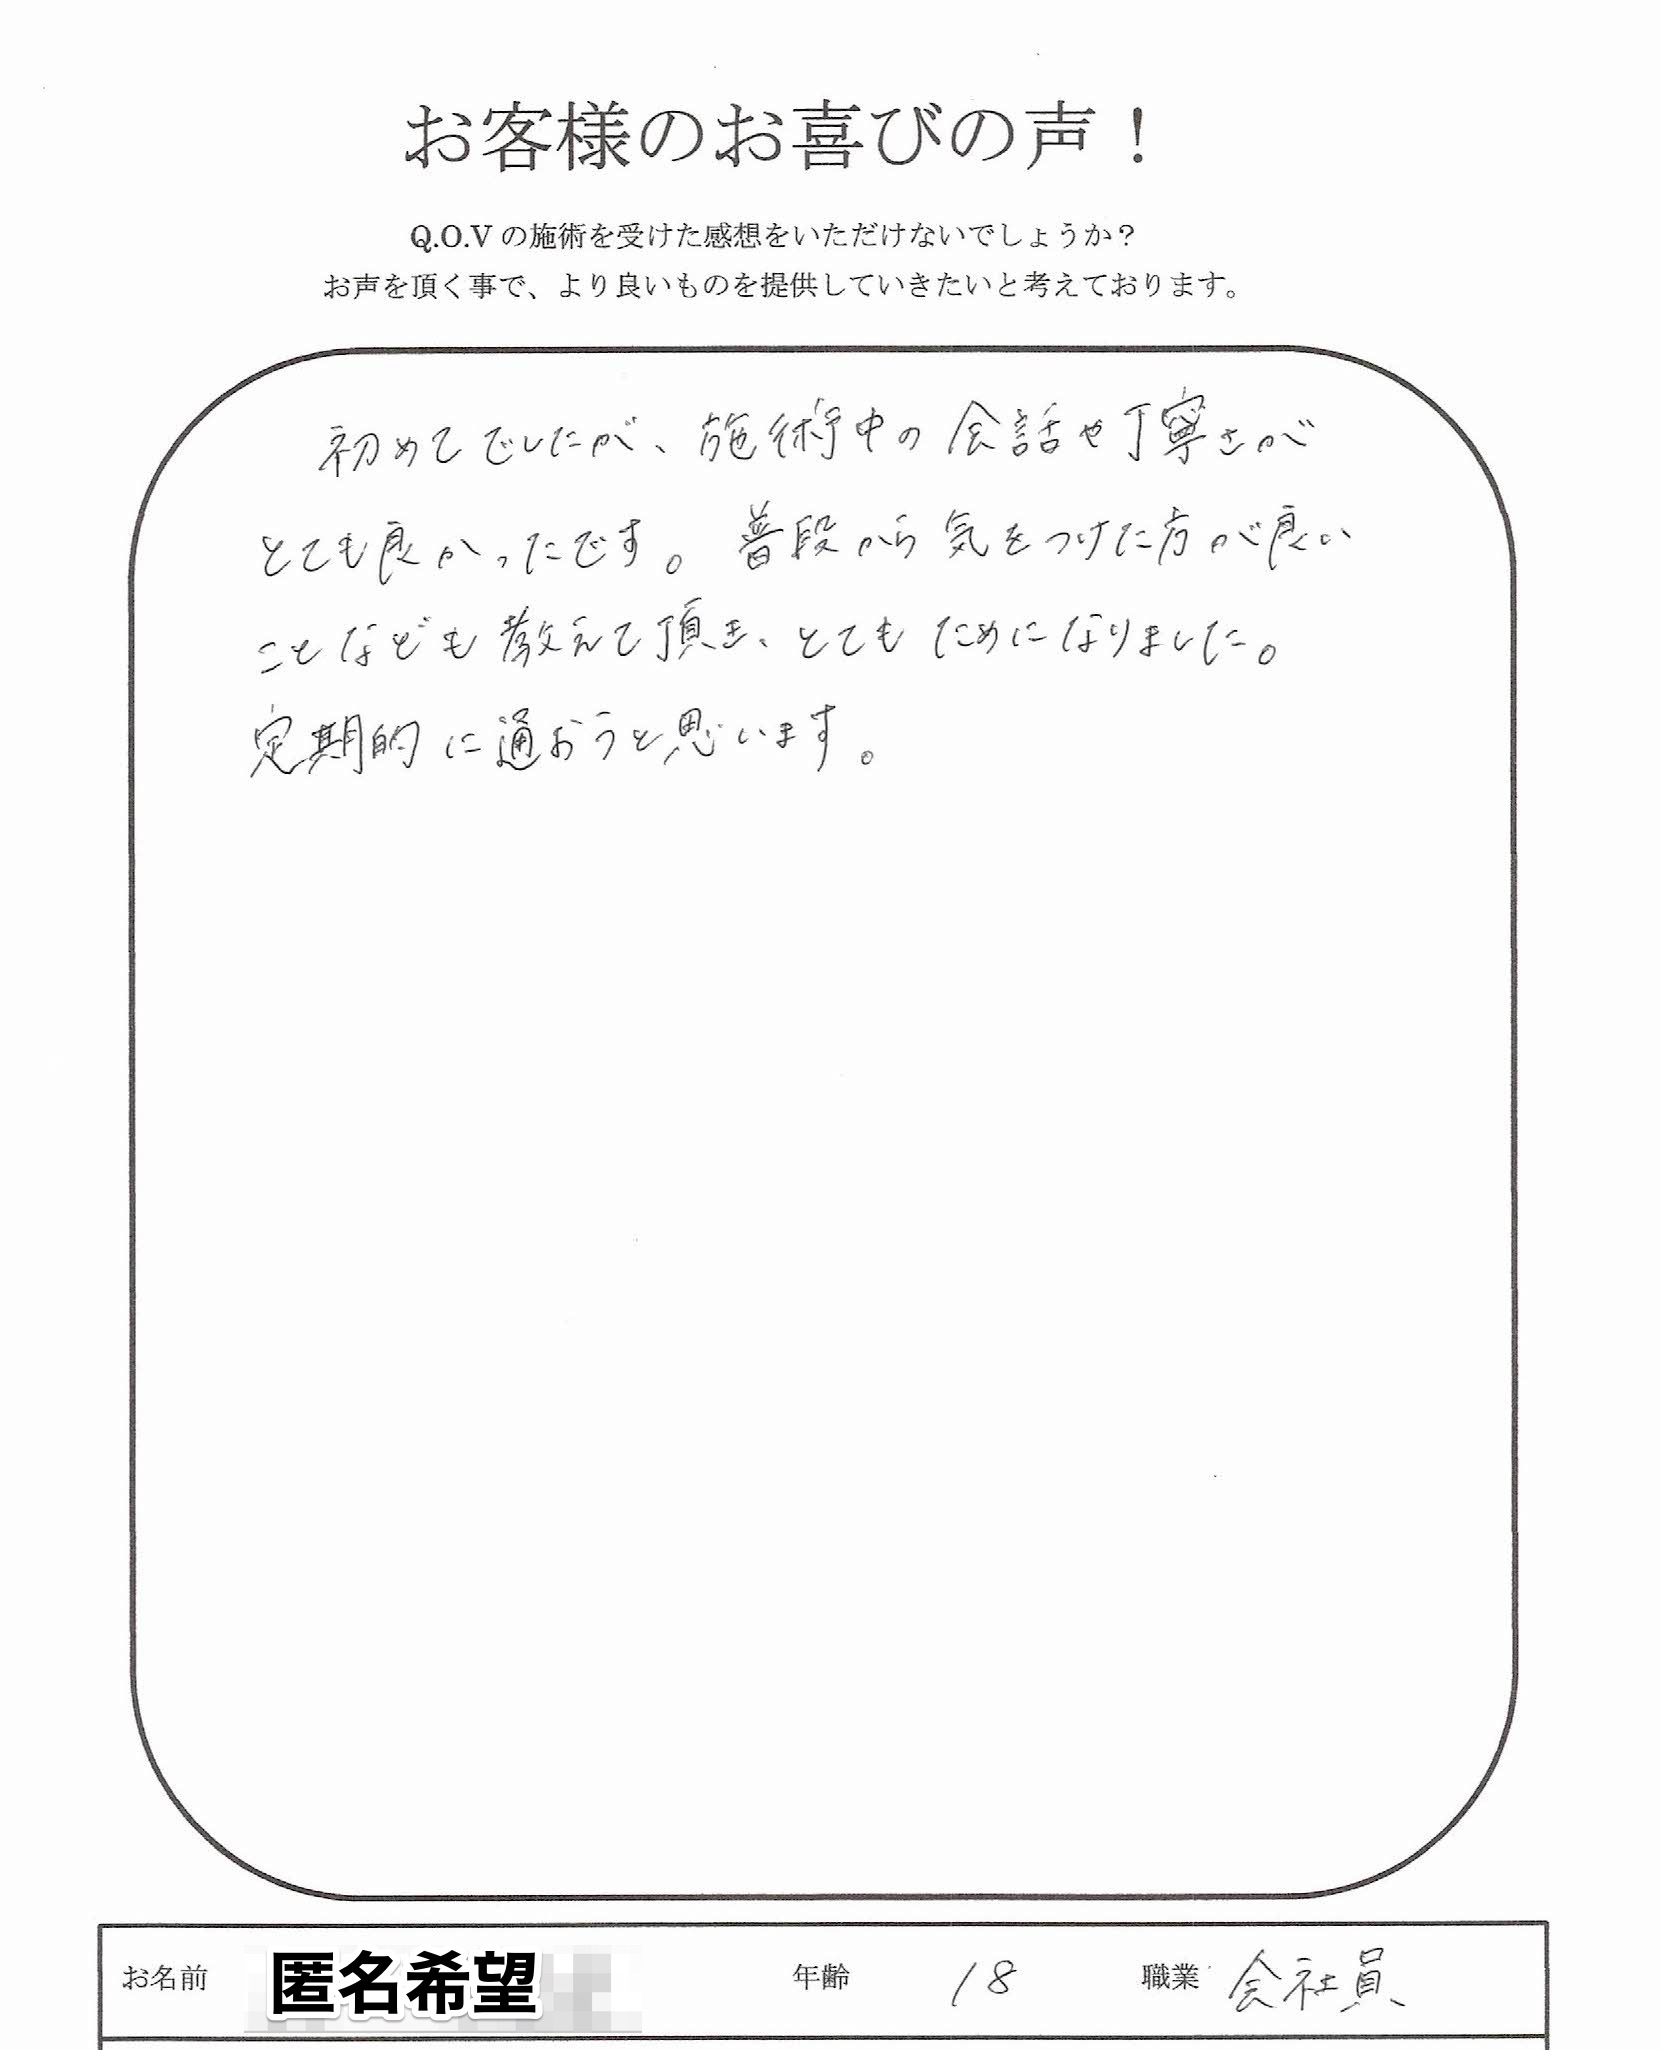 お客様のお喜びの声！
Q.O.Vの施術を受けた感想をいただけないでしょうか？
お声を頂く事で、より良いものを提供していきたいと考えております。
初めてでしたが、施術中の会話や丁寧さが
とても良かったです。普段から気をつけた方が良い
ことなども教えて頂き、とてもためになりました。
定期的に通おうと思います。
お名前 匿名希望 年齢 18 職業 会社員